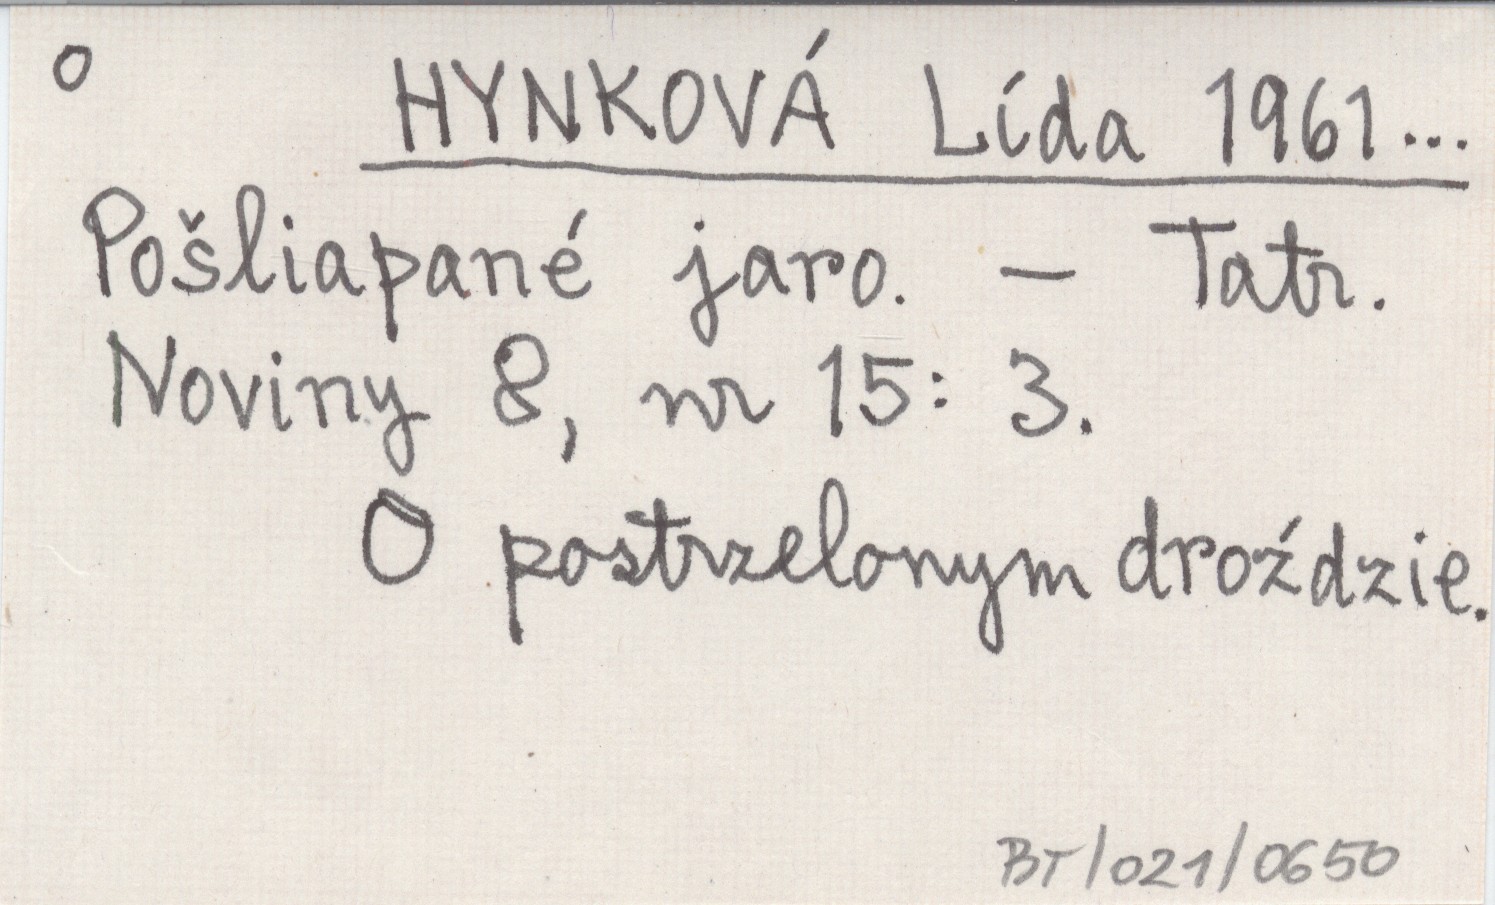 o HYNKOVÁ Lída 1961...
Pošliapané jaro. — Tatr.
Noviny 8, nr 15: 3.
O postrzelonym droździe.
BT/021/0650